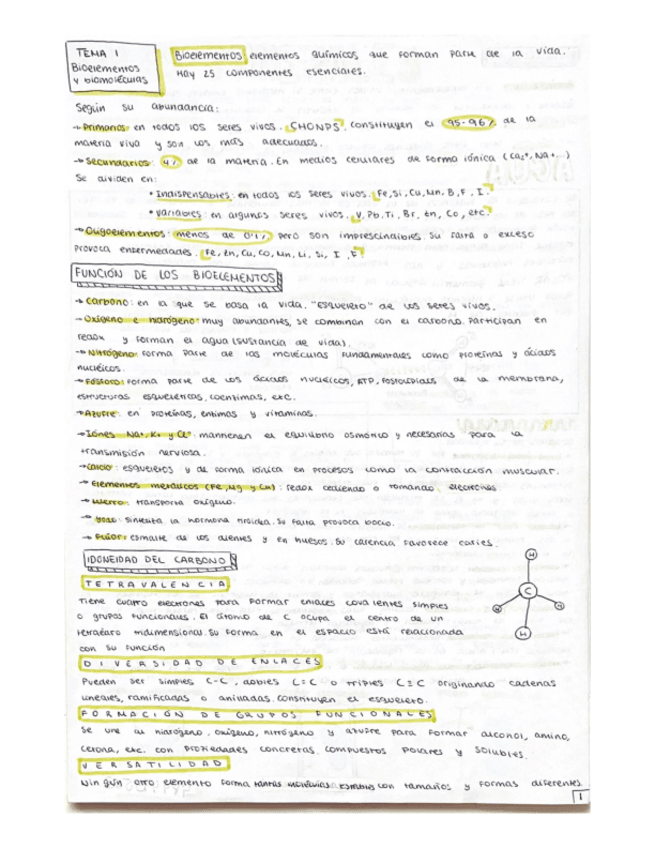 TEMA 1
Bioelementos
y biomoléculas
Bioelementos elementos químicos que forman parte de la vida.
Hay 25 componentes esenciales.
Según su abundancia:
→ Primarios: en todos los seres vivos. CHONPS. Constituyen el 95-96% de la
materia viva y son los más adecuados.
→ Secundarios: 4% de la materia. En medios celulares de forma iónica (Ca2+, Na+...)
Se dividen en:
• Indispensables: en todos los seres vivos. Fe, Si, Cu, Mn, B, F, I.
• Variables: en algunos seres vivos. V, Pb, Ti, Br, Zn, Co, etc.
→ Oligoelementos: menos de 0'1% pero son imprescindibles. Su falta o exceso
provoca enfermedades. Fe, Zn, Cu, Co, Mn, Li, Si, I, F
FUNCIÓN DE LOS BIOELEMENTOS
→ Carbono: en el que se basa la vida. "Esqueleto" de los seres vivos.
→ Oxígeno e hidrógeno: muy abundantes, se combinan con el carbono. Participan en
redox y forman el agua (sustancia de vida).
→ Nitrógeno: forma parte de las moléculas fundamentales como proteínas y ácidos
nucleicos.
→ Fósforo: forma parte de los ácidos nucleicos, ATP, fosfolípidos de la membrana,
estructuras esqueléticas, coenzimas, etc.
→ Azufre: en proteínas, enzimas y vitaminas.
→ Iones Na+, K+ y Cl-: mantienen el equilibrio osmótico y necesarias para la
transmisión nerviosa.
→ Calcio: esqueletos y de forma iónica en procesos como la contracción muscular.
→ Elementos metálicos (Fe, Mg y Cu): redox cediendo o tomando electrones.
→ Hierro: transporta oxígeno.
→ Yodo: sintetiza la hormona tiroidea. Su falta provoca bocio.
→ Flúor: esmalte de los dientes y en huesos. Su carencia favorece caries.
IDONEIDAD DEL CARBONO
TETRAVALENCIA
Tiene cuatro electrones para formar enlaces covalentes simples
o grupos funcionales. El átomo de C ocupa el centro de un
tetraedro tridimensional. Su forma en el espacio está relacionada
con su función
H
C
H
H
H
DIVERSIDAD DE ENLACES
Pueden ser simples C-C, dobles C=C o triples C≡C originando cadenas
lineales, ramificadas o anilladas. Constituyen el esqueleto.
FORMACIÓN DE GRUPOS FUNCIONALES
Se une al hidrógeno, oxígeno, nitrógeno y azufre para formar alcohol, amino,
cetona, etc. con propiedades concretas. Compuestos polares y solubles.
VERSATILIDAD
Ningún otro elemento forma tantas moléculas estables con tamaños y formas diferentes.
1